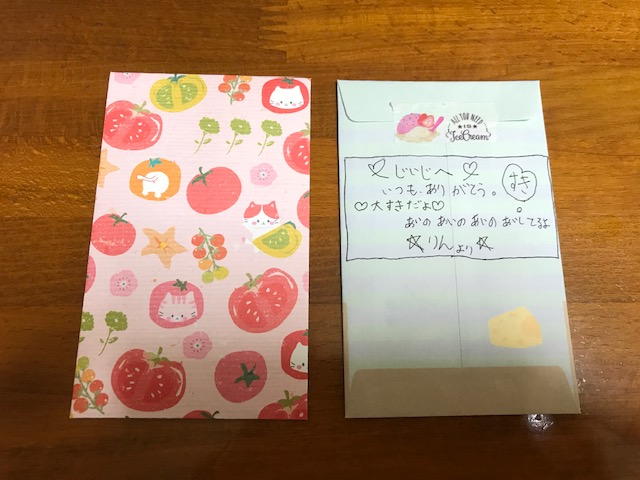 ALL YOU NEED
IS
IceCream
♡じいじへ♡
いつも.ありがとう。
すき
♡大すきだよ♡
あいの あいの あいの あいしてるよ
☆りんより☆